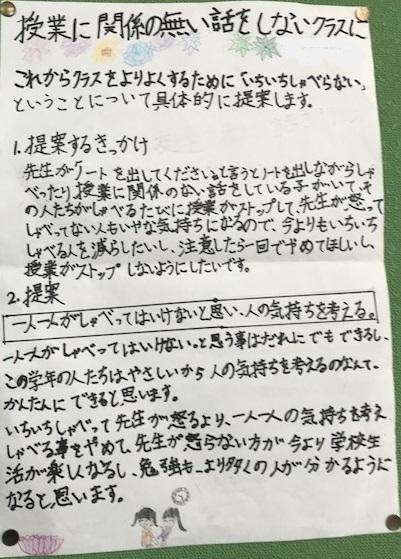 授業に関係の無い話をしないクラスに
これからクラスをよりよくするために「いちいちしゃべらない」
ということについて具体的に提案します。
1.提案するきっかけ
先生が「ノートを出してください。」と言うとノートを出しながらしゃ
べったり授業に関係のない話をしている子がいて、そ
の人たちがしゃべるたびに授業がストップして、先生が怒って
しゃべってない人もいやな気持ちになるので、今よりもいちいち
しゃべる人を減らしたいし、注意したら一回でやめてほしいし、
授業がストップしないようにしたいです。
2.提案
一人一人がしゃべってはいけないと思い、人の気持ちを考える。
一人一人がしゃべってはいけない。と思う事はだれにでもできるし、
この学年の人たちはやさしいから人の気持ちを考えるのなんて、
かんたんにできると思います。
いちいちしゃべって先生が怒るより、一人一人の気持ちを考え
しゃべる事をやめて、先生が怒らない方が今より学校生
活が楽しくなるし、勉強も、より多くの人が分かるように
なると思います。